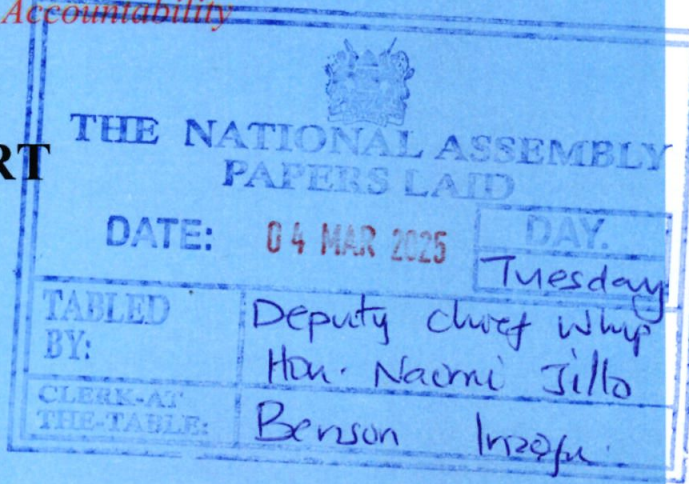 Accountability
RT
THE NATIONAL ASSEMBLY
PAPERS LAID
DATE: 04 MAR 2025
DAY.
Tuesday
TABLED
BY:
Deputy chief Whip
Hon. Naomi Jillo
CLERK-AT
THE-TABLE:
Benson